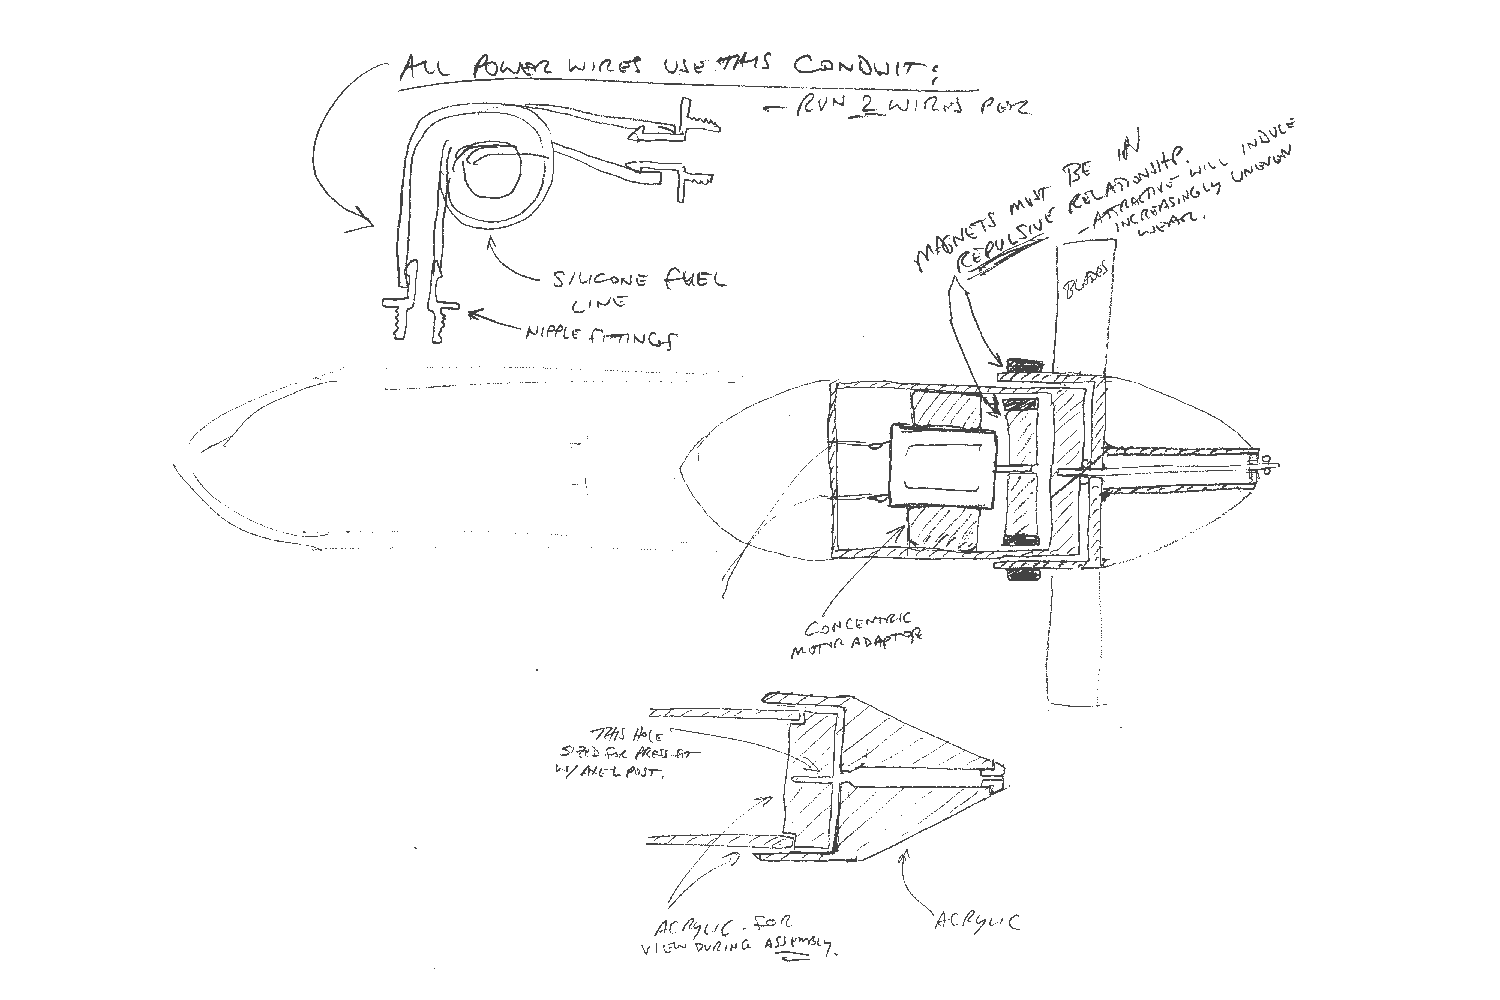 ALL POWER WIRES USE THIS CONDUIT:
- RUN 2 WIRES PER
MAGNETS MUST BE IN
REPULSIVE RELATIONSHIP.
- ATTRACTIVE WILL INDUCE
INCREASINGLY UNEVEN
WEAR.
BLADES
SILICONE FUEL
LINE
NIPPLE FITTINGS
CONCENTRIC
MOTOR ADAPTOR
THIS HOLE
SIZED FOR PRESS FIT
W/ AXEL POST.
ACRYLIC FOR
VIEW DURING ASSEMBLY.
ACRYLIC